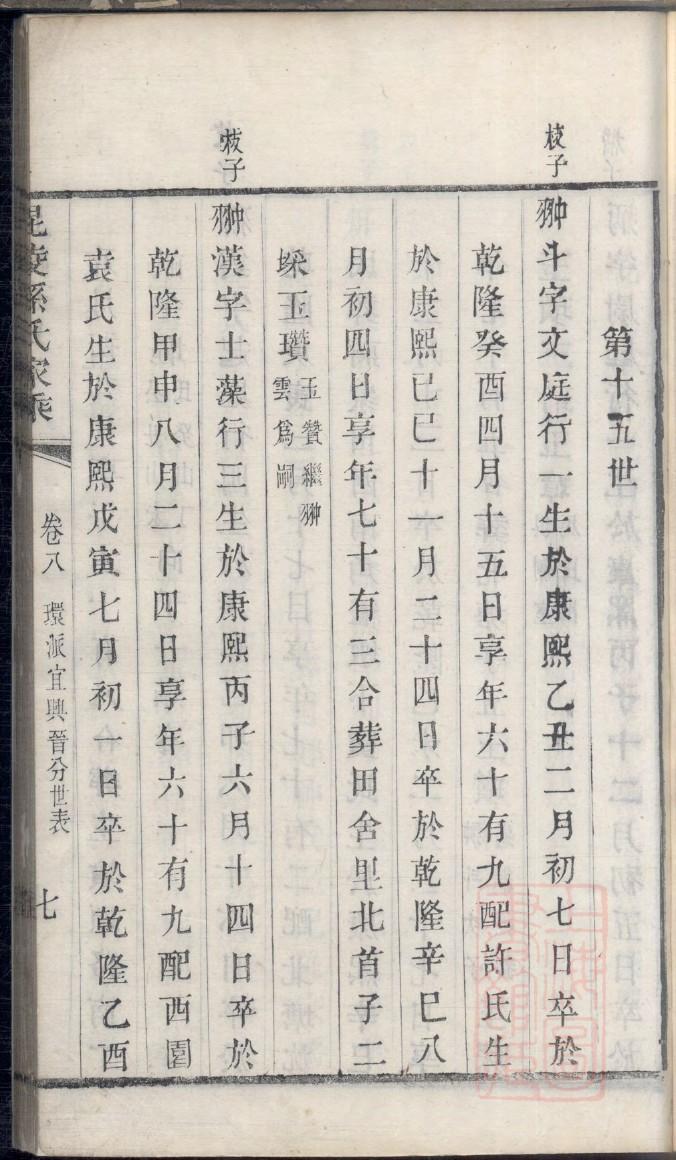 第十五世
枝子
翀斗字文庭行一生於康熙乙丑二月初七日卒於
乾隆癸酉四月十五日享年六十有九配許氏生
於康熙己巳十一月二十四日卒於乾隆辛巳八
月初四日享年七十有三合葬田舍里北首子二
埰玉瓚玉贊繼翀
雲爲嗣
枝子
翀漢字士藻行三生於康熙丙子六月十四日卒於
乾隆甲申八月二十四日享年六十有九配西園
袁氏生於康熙戊寅七月初一日卒於乾隆乙酉
毘陵孫氏家乘
卷八 環派宜興晉分世表
七